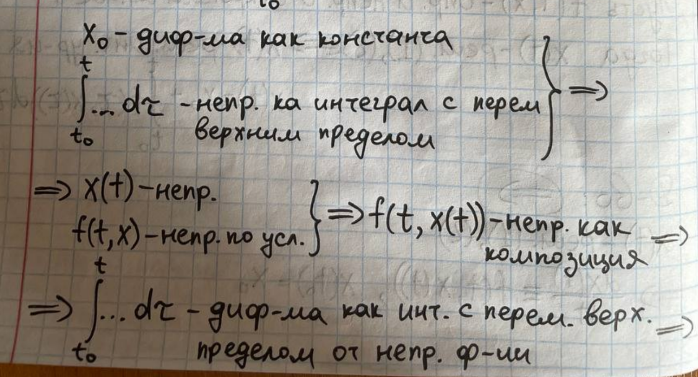 x₀ - диф-ма как константа
∫ₜ₀ᵗ ... dτ - непр. ка интеграл с перем } ⟹
верхним пределом
⟹ x(t) - непр.
f(t, x) - непр. по усл. } ⟹ f(t, x(t)) - непр. как ⟹
композиция
⟹ ∫ₜ₀ᵗ ... dτ - диф-ма как инт. с перем. верх. ⟹
пределом от непр. ф-ии